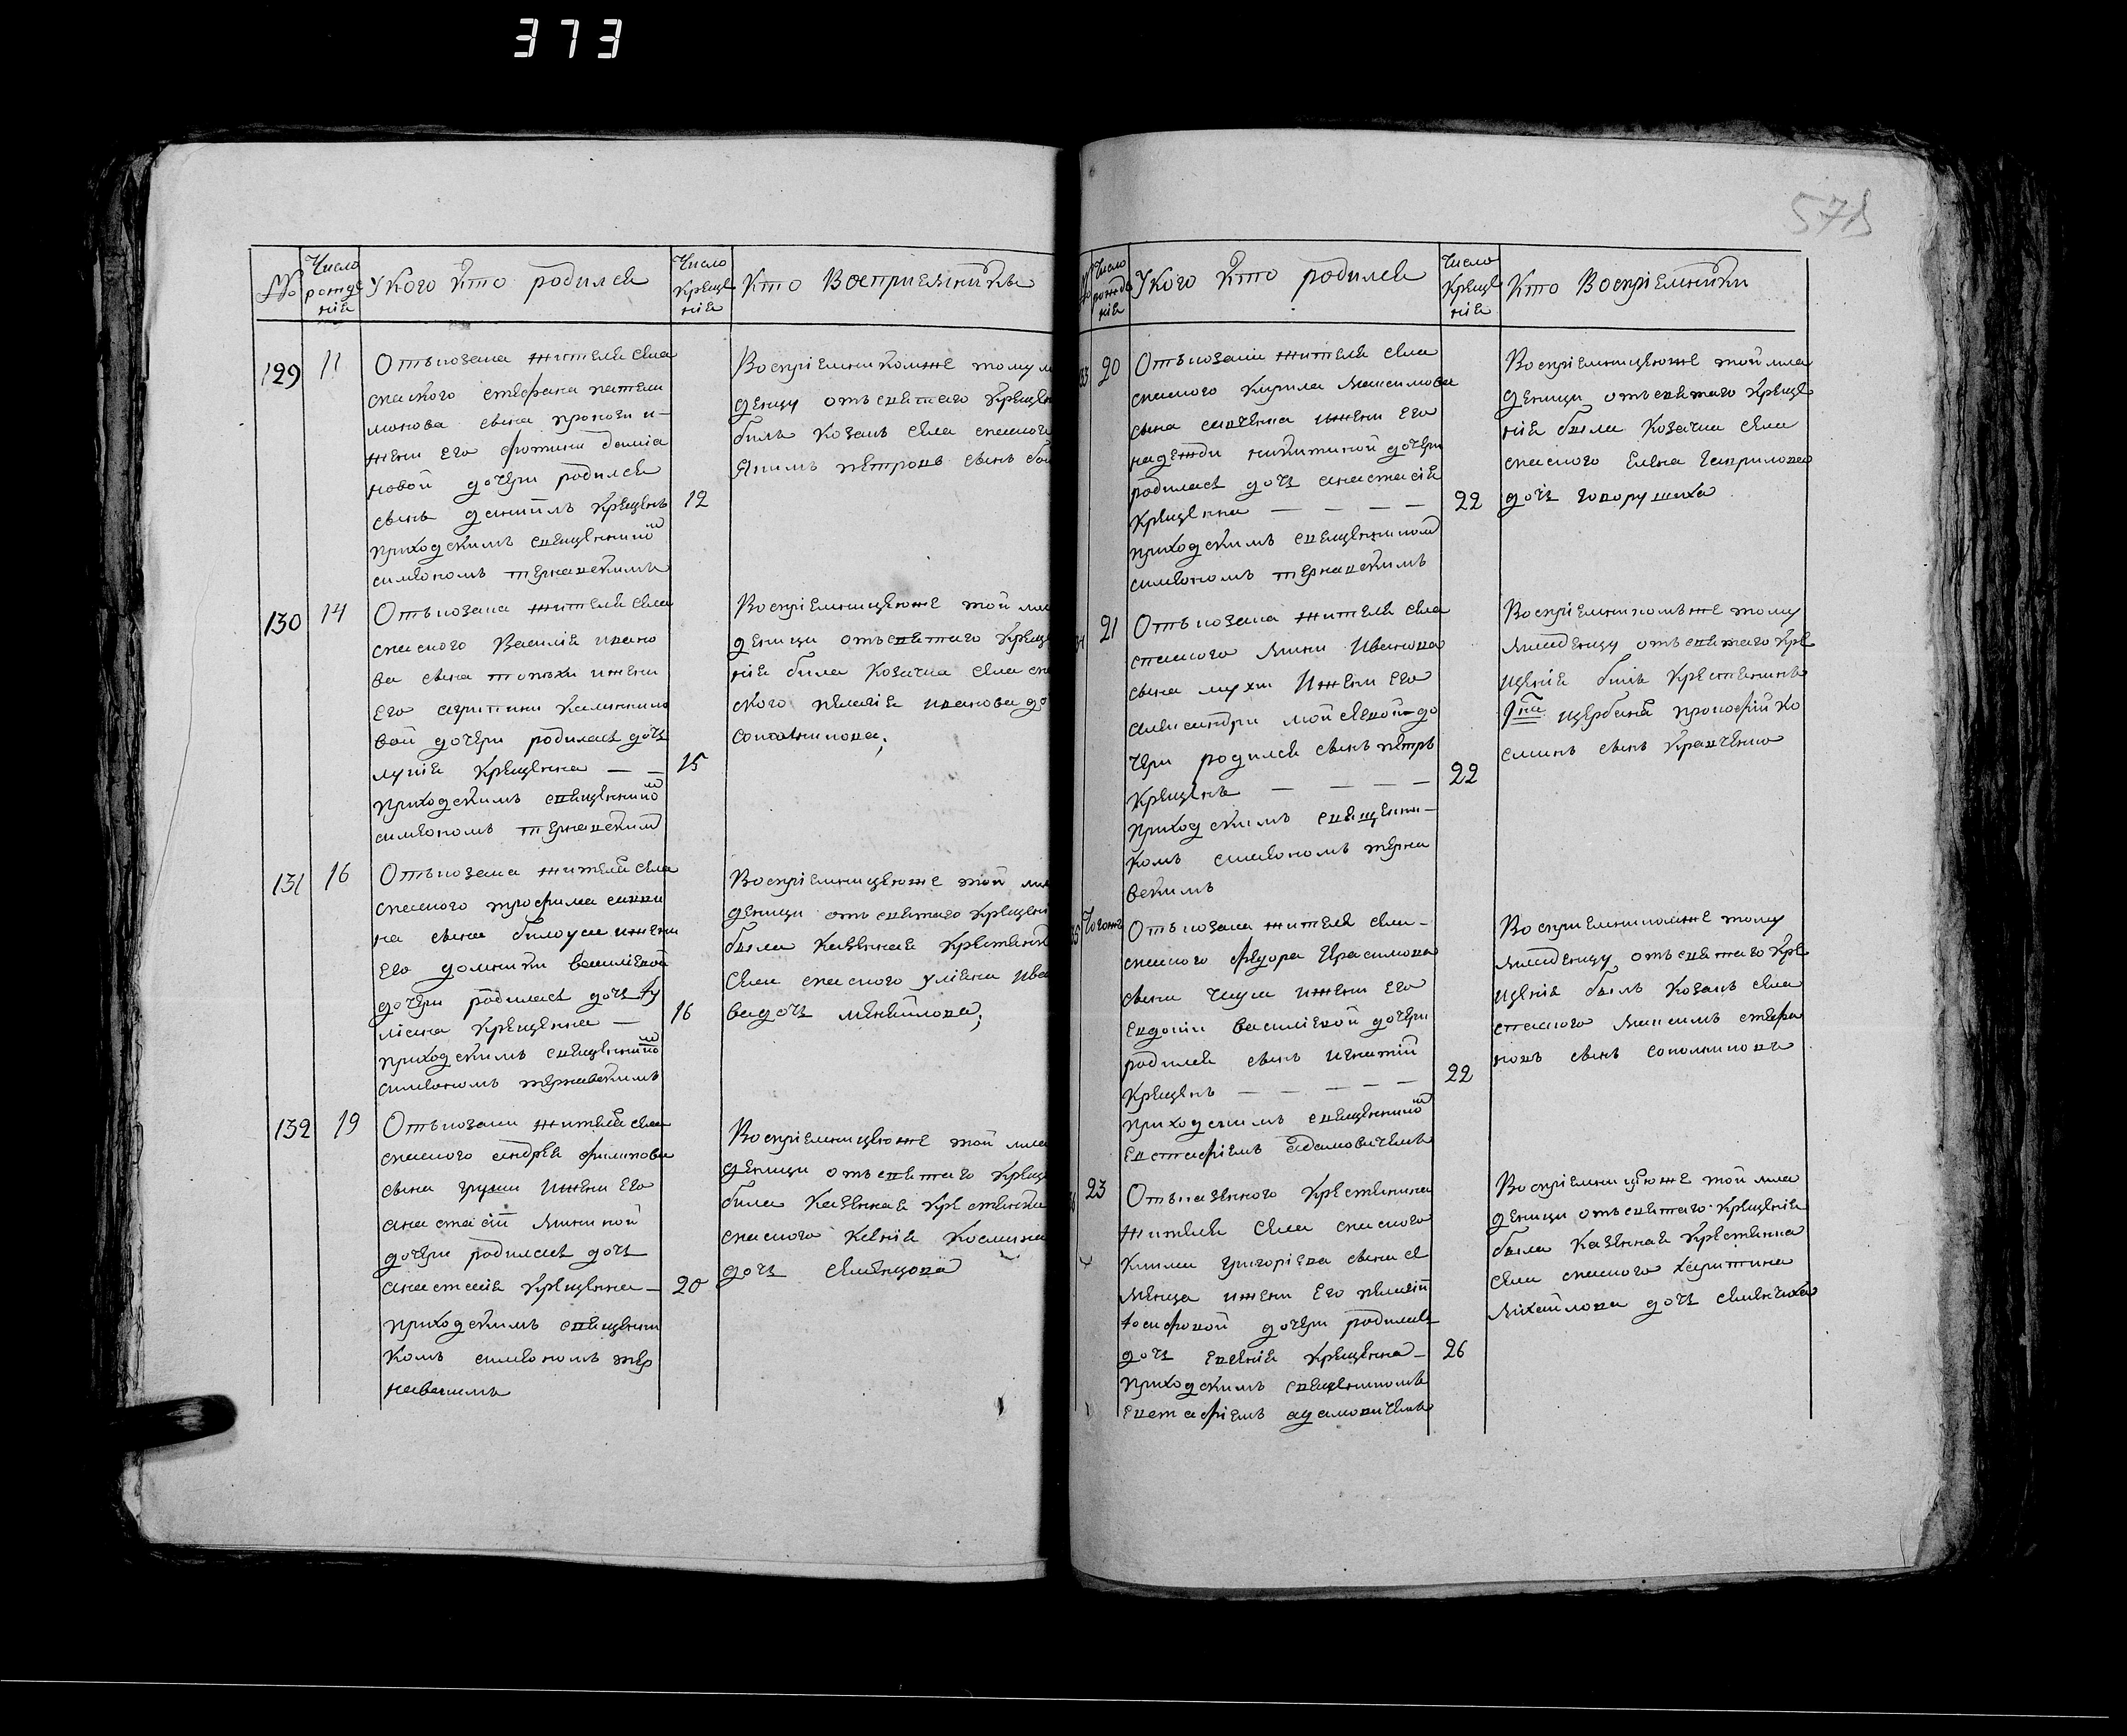 373
578
№
Число рожде нія
У кого кто родился
Число Креще нія
Кто Восприемники
129
11
Отъ козака жителя села
спаского стефана пател
монова сына проковн и-
жени его фотини данiа
новой дочери родился
сынъ даніилъ крещенъ
приходскимъ священникомъ
симеономъ тернавскимъ
12
Воспріемникомже тому м
денцу отъ святаго Креще
билъ козакъ села спаского
Якимъ петровъ сынъ
130
14
Отъ козака жителя села
спаского Василія ивано
ва сына топѣхи ижени
его агрипини Калиннико
вой дочери родилась дочь
лукія крещенна — —
приходскимъ священникомъ
симеономъ тернавскимъ
15
Воспріемницеюже той мла
деници отъ святаго крещ
нія била козачка села спа
ского пелагія иванова до
сополникова;
131
16
Отъ козака жителя села
спаского трофима савви
на сына билоуса ижени
его домники василіевой
дочери родилась дочь Іу
ліана крещенна —
приходскимъ священникомъ
симеономъ тернавскимъ
16
Воспріемницеюже той мла
деници отъ святаго крещен
была казенная крестянка
села спаского уліяна ива
ва дочь михайлова;
132
19
Отъ козака жителя села
спаского андрея филипова
сына грушки ижени его
анастасіи якиной
дочери родилась дочь
анастасія крещенна —
приходскимъ священни
комъ симеономъ тер
навскимъ
20
Воспріемницеюже той мла
деници отъ святаго крещ
била казенная крестянка
спаского Ксенія Космина
дочь семенцова
№
Число рожде нія
У кого кто родился
Число Креще нія
Кто Воспріемники
33
20
Отъ козака жителя села
спаского кирила максимова
сына савченка ижени его
надежди никитиной дочери
родилась дочь анастасія
крещенна — — — —
приходскимъ священникомъ
симеономъ тернавскимъ
22
Воспріемницеюже той мла
деници отъ святаго креще
нія была козачка села
спаского елена гаврилова
дочь говорушиха
21
Отъ козака жителя села
спаского якима Иванова
сына мухи Ижени его
александри мойсеевой до
чери родился сынъ петръ
Крещенъ — — — —
приходскимъ священни-
комъ симеономъ терна
вскимъ
22
Воспріемникомъже тому
младенцу отъ святаго кре
щенія билъ крестянинъ
Г-на щербаня прокофій ко
сминъ сынъ кравченко
35
Тогожъ
Отъ козака жителя села-
спаского федора Герасимова
сына чауса ижени его
евдокіи василіевой дочери
родился сынъ игнатій
Крещенъ — — — —
приходскимъ священникомъ
евстафіемъ адамовичемъ
22
Восприемникомже тому
младенцу отъ святаго кре
щенія былъ козакъ села
спаского максимъ стефа
новъ сынъ сополниковъ
23
Отъ казенного крестянина
жителя села спаского
клими григоріева сына се
менца ижени его пелагіи
Іосифовой дочери родилась
дочь евгенія крещенна —
приходскимъ священникомъ
евстафіемъ адамовичемъ
26
Воспріемницеюже той мла
деници отъ святаго крещенія
была казенная крестянка
села спаского харитина
михайлова дочь семенчиха